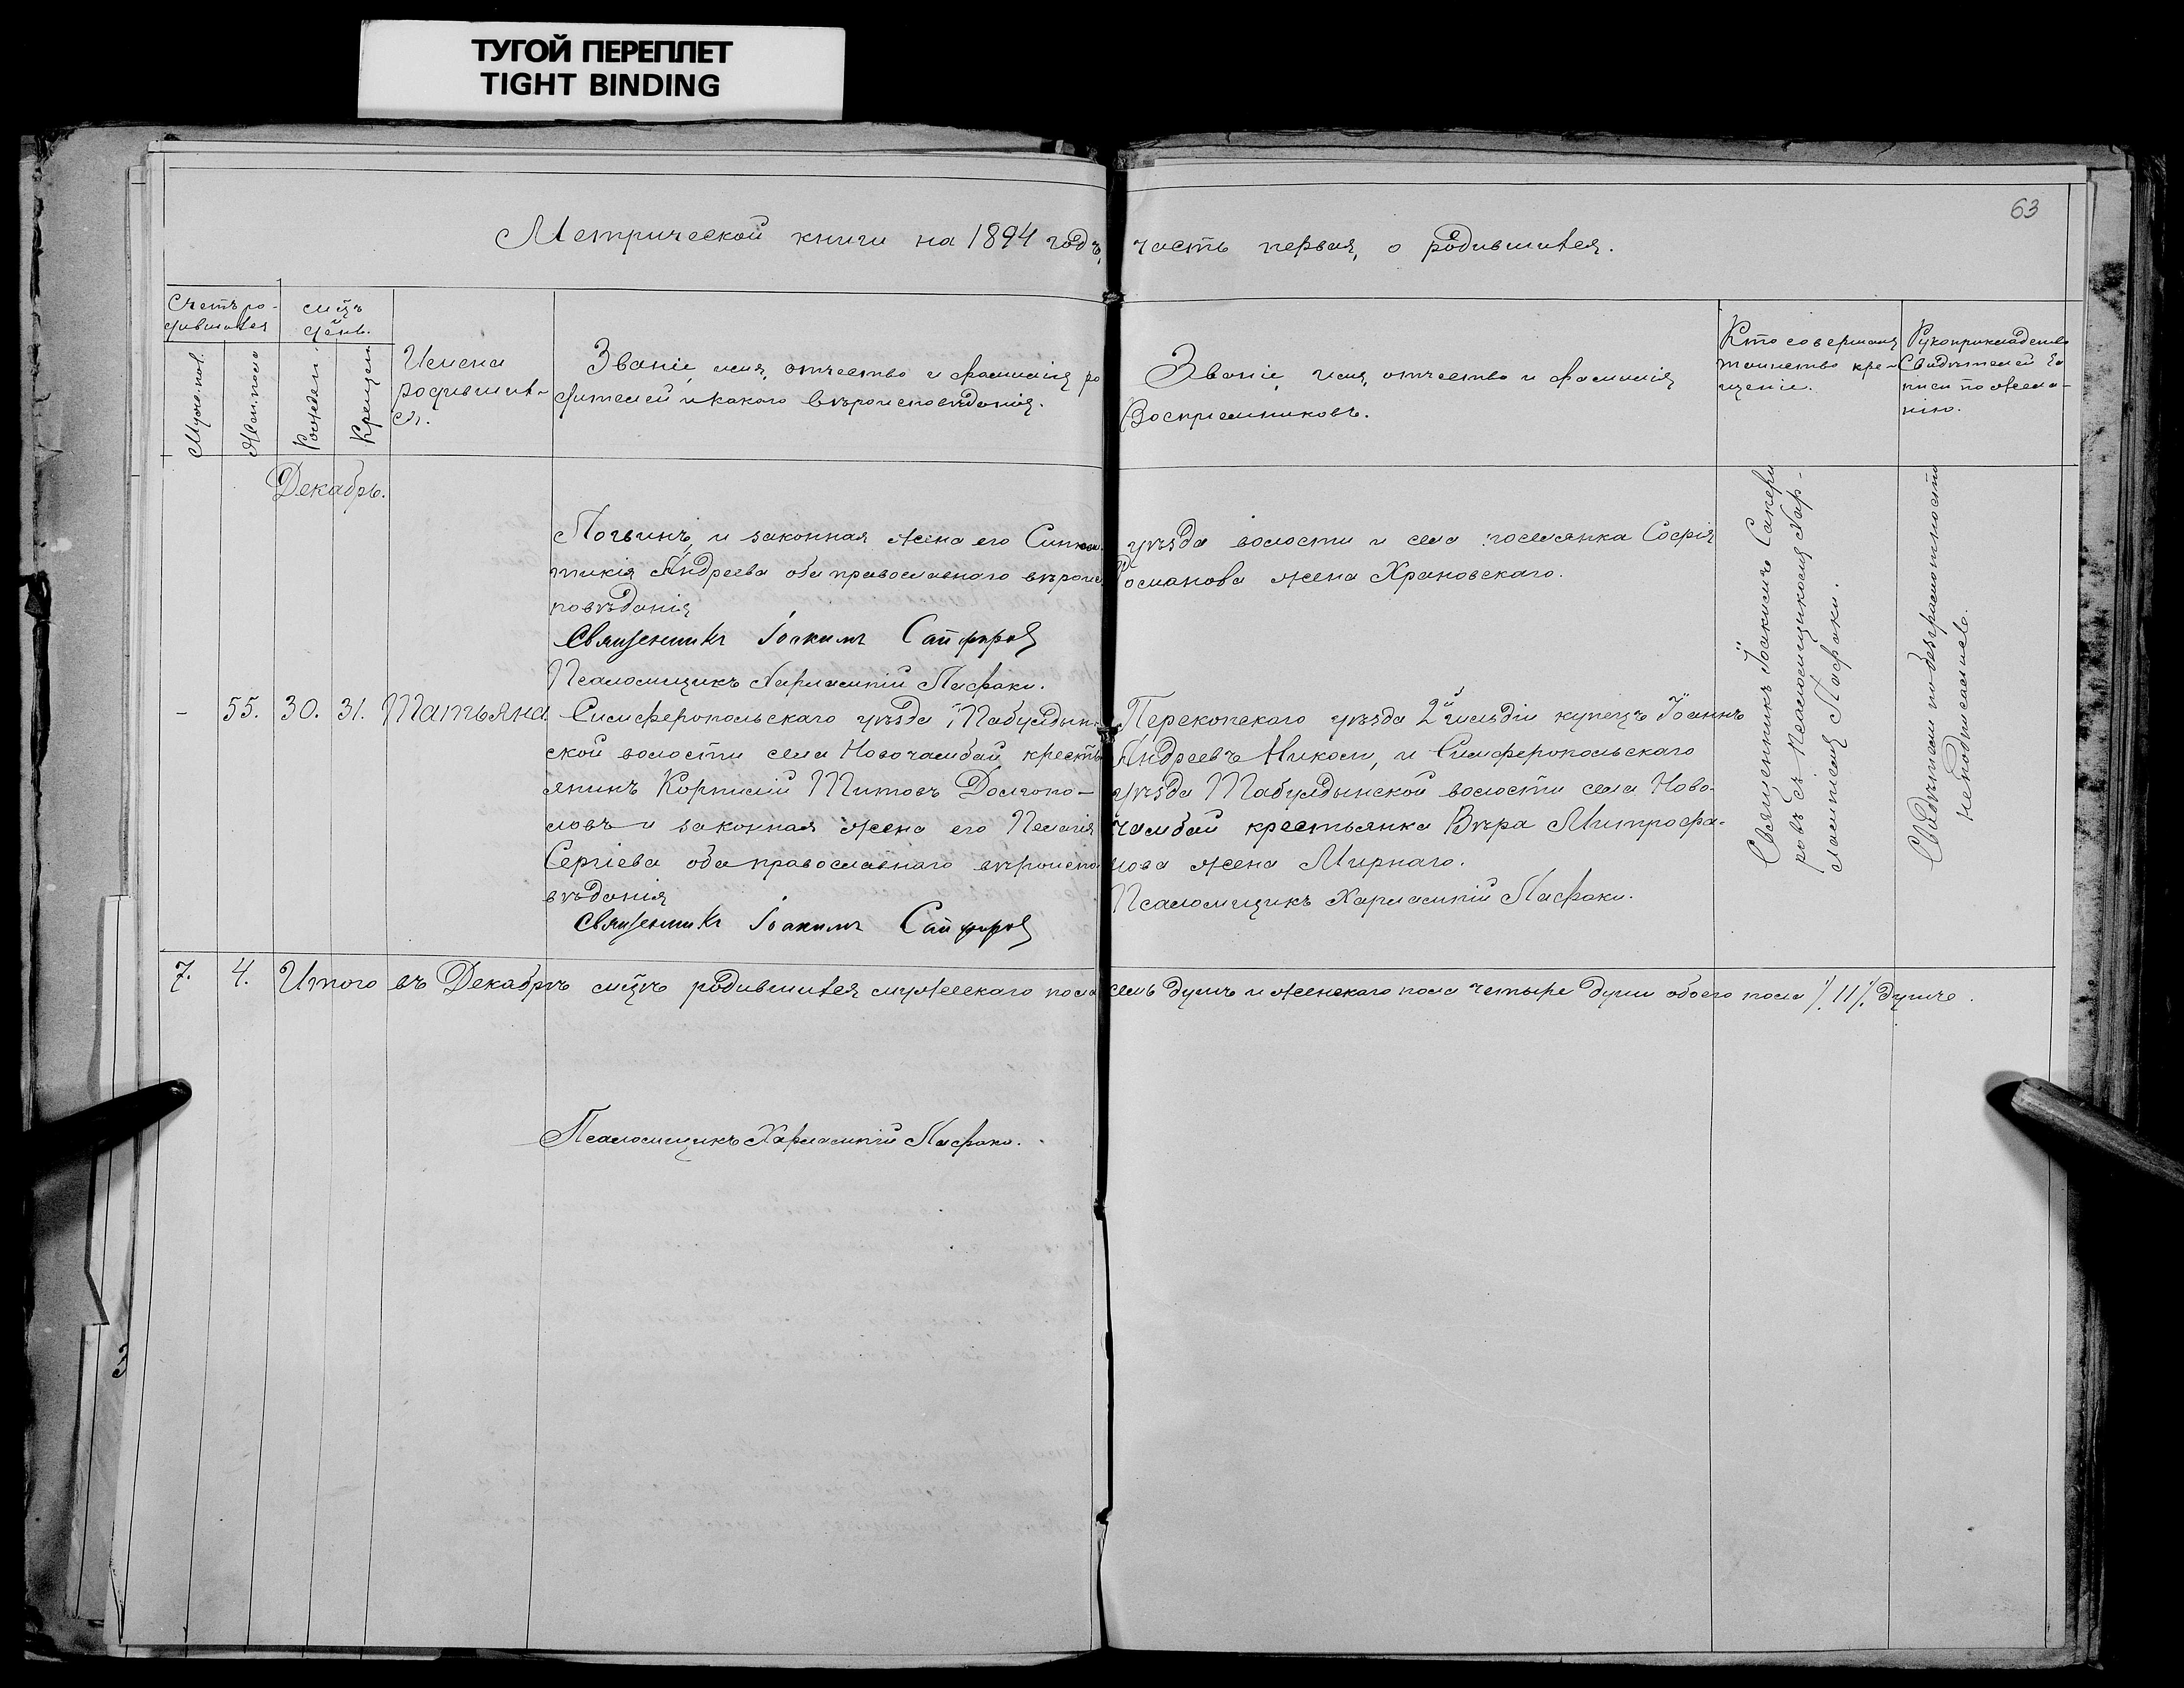 ТУГОЙ ПЕРЕПЛЕТ
TIGHT BINDING
63
Метрической книги на 1894 годъ, часть первая, о родившихся.
Счетъ ро-
дившихся
мцъ
день.
Мужск. пол.
Жен. пола
Рожден.
Крещен.
Имена
родивших-
ся.
Званіе, имя, отчество и фамилія ро
дителей и какого вѣроисповѣданія.
Званіе, имя, отчество и фамилія
Воспріемниковъ.
Кто совершалъ
таинство кре-
щенія.
Рукоприкладство
Свидѣтелей за
писи по жела-
нію.
Декабрь.
Логвинъ, и законная жена его Синкли-
тикія Андреева оба православнаго вѣроис
повѣданія
Священникъ Іоакимъ Сапфировъ
Псаломщикъ Харлампій Пасхаки.
уѣзда волости и села поселянка Софія
Романова жена Храновскаго.
- 55. 30. 31. Татьяна
Симферопольскаго уѣзда Табулдын-
ской волости села Новочамбай кресть
янинъ Корнилій Титовъ Долгопо-
ловъ и законная жена его Пелагія
Сергіева оба православнаго вѣроиспо
вѣданія
Священникъ Іоакимъ Сапфировъ
Перекопскаго уѣзда 2й гильдіи купецъ Іоаннъ
Андреевъ Николи, и Симферопольскаго
уѣзда Табулдынской волости села Ново-
чамбай крестьянка Вѣра Митрофа-
нова жена Мирнаго.
Псаломщикъ Харлампій Пасхаки.
Священникъ Іоакимъ Сапфи
ровъ съ Псаломщикомъ Хар-
лампіемъ Пасхаки.
Свидѣтели по безграмотности
неподписались.
7. 4. Итого въ Декабрѣ мцѣ родившихся мужескаго пола семь душъ и женскаго пола четыре души обоего пола /. 11 /. душъ.
Псаломщикъ Харлампій Пасхаки.